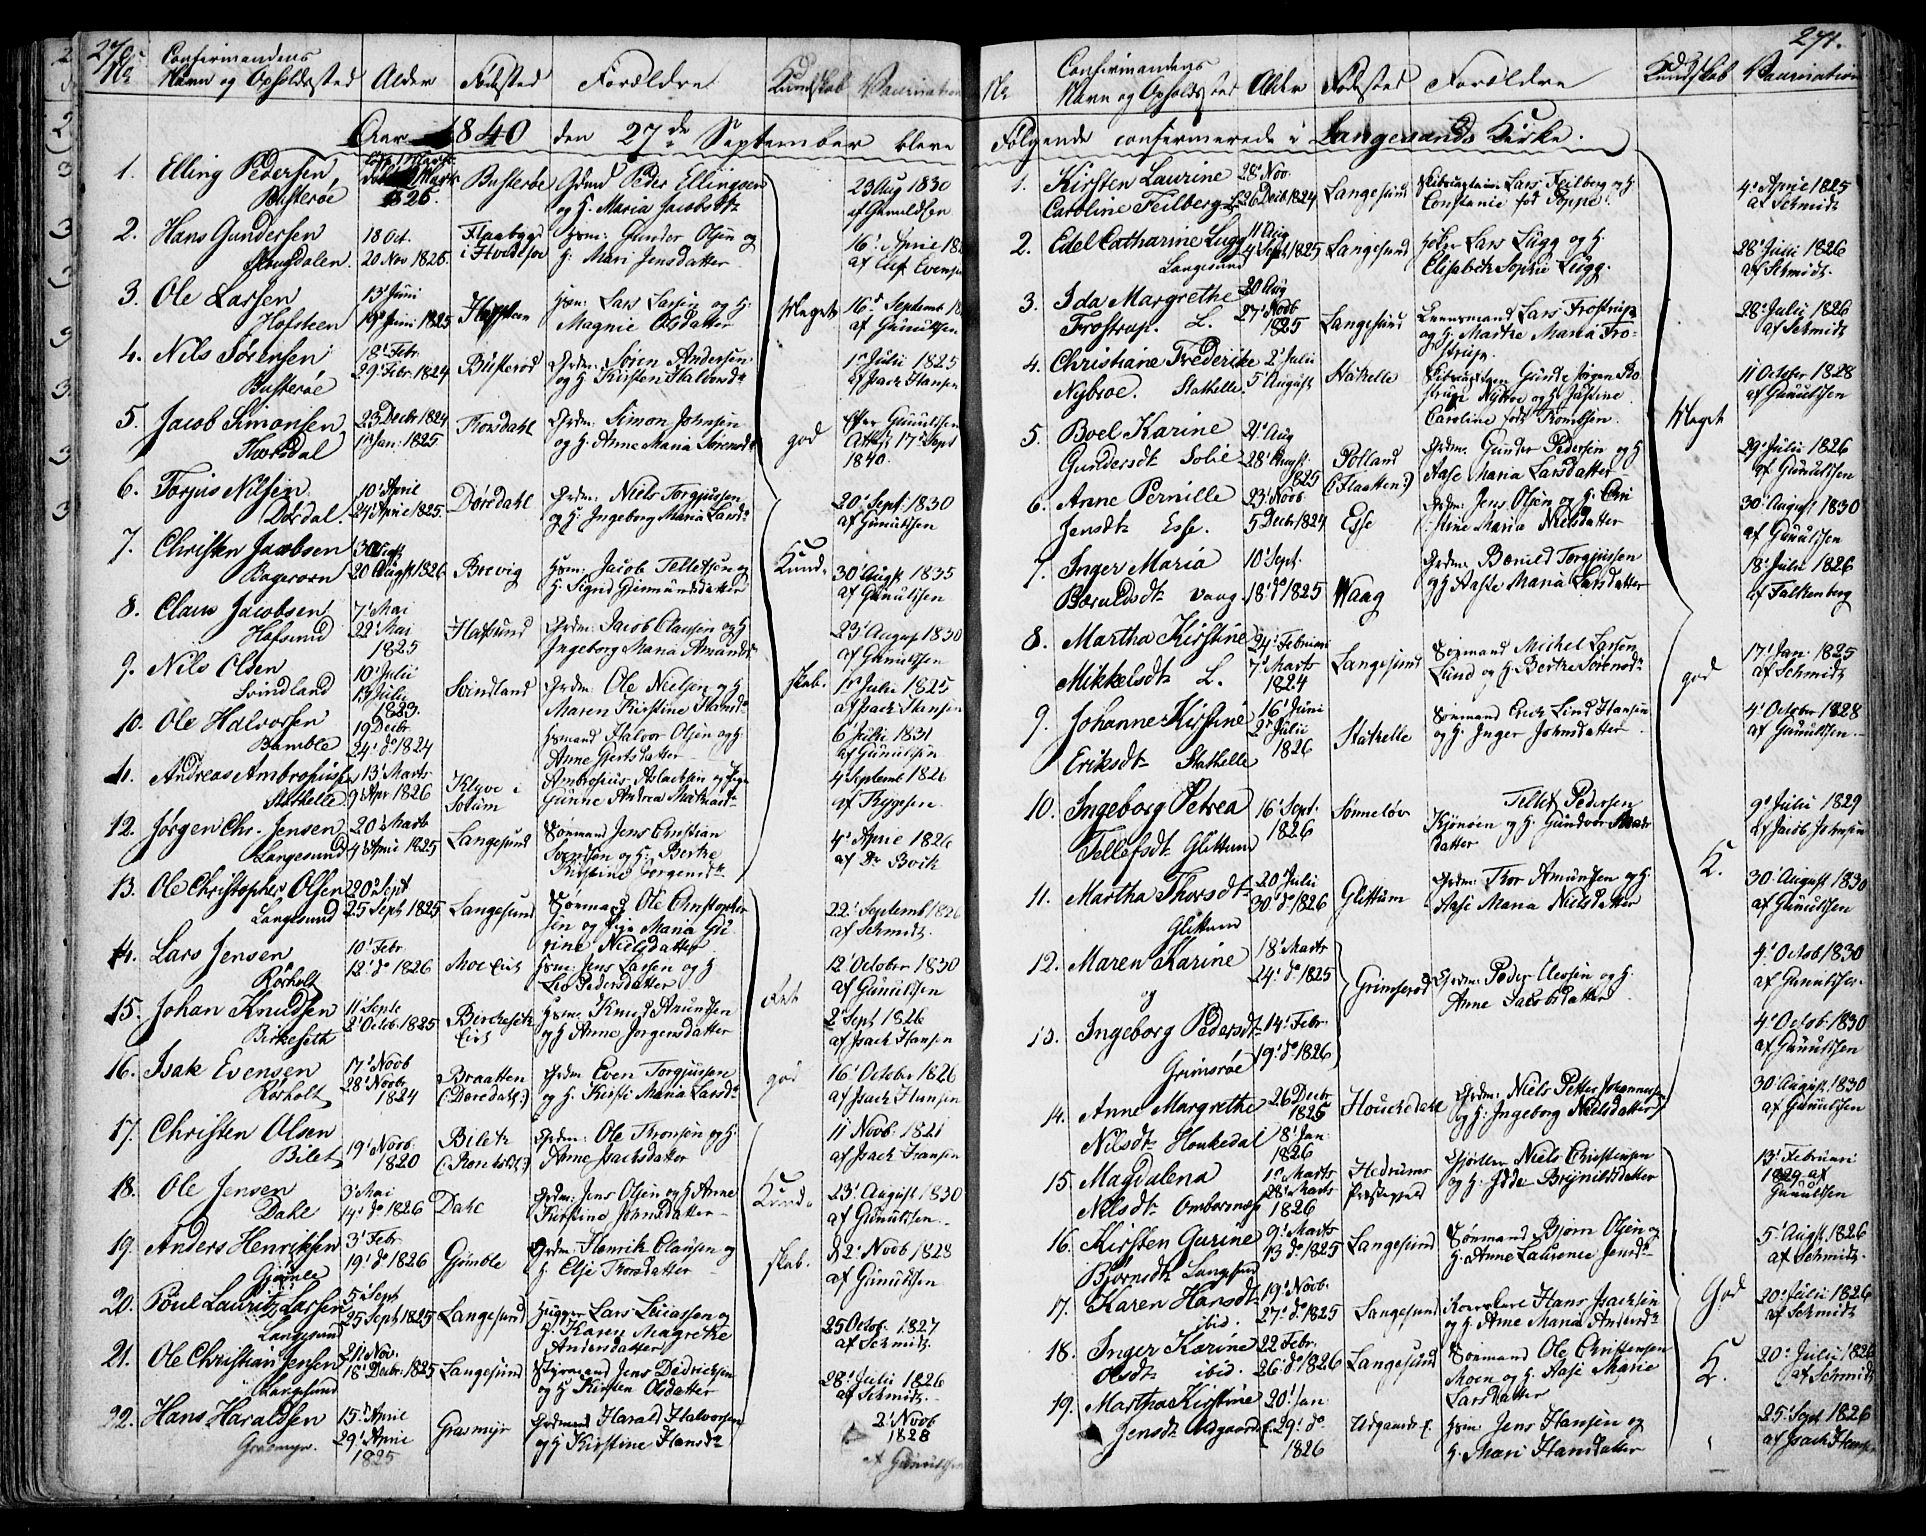 270.
Nr
Confirmandens
Navn og Opholdssted
Alder
Fødested
Forældre
Kundskab
Vaccination
Aar 1840 den 27de September bleve
1. Elling Pedersen,
Busterøe
1825.
Busterøe
Peder Ellingsen
og H. Maria Jacobsdtr
23 Aug 1830
af Gunuldsen
2. Hans Gundersen
18 Oct.
20 Nov 1825
Gunder Olsen og
H. Mari Jensdatter
16' April
af
3. Ole Larsen
Hofsteen
13' Juni
19' Juni 1825
Hofsteen
Hsm: Lars Larsen og H.
Magnie Olsdatter
Meget
af Gunuldsen
4. Nils Sørensen
Busterøe
18' Febr.
29' Febr. 1824
Søren Andersen
og H. Kirsten Halvorsdr
1' Julii 1825
af Isach Hansen
5. Jacob Simonsen
23 Decbr 1824
1' Jan. 1825
Grdm: Simon Johnsen
og H. Anne Maria Sørensdr
god
Efter Gunuldsen
Attest 17' Sept
1840.
6. Torjus Nilsen
Dørdal.
10' April
24' April 1825
Dørdahl
Grdm: Niels Torgiussen
og H. Ingeborg Maria Larsdr
20' Sept. 1830
af Gunuldsen
7. Christen Jacobsen
20 August 1826
Brevig
Hsm: Jacob Tellefsen og
Kund-
30' August 1835
af Gunuldsen
8. Claus Jacobsen
Hafsund
7' Mai
22' Mai
1825
Hafsund
Grdm: Jacob Clausen og H
Ingeborg Maria Amundsdr
23' August 1830
af Gunuldsen
9. Nils Olsen
Svindland
10' Julii
13' Julii
1823.
Svindland
Grdm: Ole Nielsen og H
Maren Kirstine Hansdr
skab.
1' Julii 1825
af Isach Hansen
10. Ole Halvorsen
Bamble
19 Decbr.
24' do 1824
Hsmand Halvor Olsen og H.
Anne Gjertsdatter
6 Julii 1831
af Gunuldsen
11. Andreas Ambrosius
Stathelle
13' Marts
9' Apr 1826
Klyve i
Solum
Ambrosius Aslachsen og
4 Septemb 1826
af Thygesen.
12. Jørgen Chr. Jensen
Langesund
20' Marts
4' April 1825
Langesund
Sømand Jens Christian
Svendsen og H. Berthe
Kirstine Jørgensdr
4' April 1826
af Dr Bvik
13. Ole Christopher Olsen
Langesund
20' Sept
25 Sept 1825
Langesund
Sømand Ole Christopher
sen og
Nielsdatter
22' Septemb 1826
af Schmidt.
14. Lars Jensen
Rørholt
10' Febr.
12' do 1826
Hsm: Jens Larsen og H
Pedersdatter
12' October 1830
af Gunuldsen
15. Johan Knudsen
Birkeseth
11' Septe
2' Octob. 1825
Hsm: Knud Amundsen
og H. Anne Jørgensdatter
2' Sept 1826
af Isach Hansen
16. Isak Evensen
Rørholt
17' Novb
28' Novbr
1824
Braatten
(: Dørdahl:)
Grdm: Even Torgiussen
og H. Kirsti Maria Larsdr
god
16' October 1826
af Isach Hansen
17. Christen Olsen
Bilet
19' Novb.
1820
Grdm: Ole Thorsen og H.
Anne Isachsdatter
11 Novb. 1821
af Isach Hansen
18. Ole Jensen
Dahl
3' Mai
14' do 1826
Dahl
Grdm: Jens Olsen og H Anne
Kirstine Johnsdatter
Kund-
23' August 1830
af Gunuldsen.
19. Anders Henriksen
Gjømle
3' Febr
19' do 1826
Gjømble
Grdm: Henrik Clausen og
H. Else Thorsdatter
skab.
2' Novb 1828
af Gunuldsen
20. Poul Lauritz Larsen
Langesund
5' Sept
25 Sept 1825
Langesund
Lars
H. Karen Magrethe
Andersdatter
25 Octob. 1827
af Schmidt.
21. Ole Christian Jensen
Langesund
21 Nov.
18' Decbr. 1825
Langesund
Styrmand Jens Didrichsen
og H Kirsten Olsdatter
28' Julii 1826
af Schmidt.
22. Hans Haraldsen
Grasmyr.
15' April
29' April
1825
Grasmyr
Grdmand Harald Halvorsen
og H Kirstine Hansdr
2' Novb
1828
af Gunuldsen
271.
Nr
Confirmandens
Navn og Opholdsted
Alder
Fødested
Forældre
Kundskab
Vaccination
Følgende confirmerede i Langesunds Kirke.
1. Kirsten Laurine
Caroline Feilberg L.
28' Nov.
26 Decb 1824
Langesund
Lars Feilberg og H
Constanie fød Poppe.
4' April 1825
af Schmidt
2. Edel Catharine Lugg
Langesund
11 Aug
4 Sept 1825
Langesund
Lars Lugg og H.
Elisabeth Sophie Lugg.
28' Julii 1826
af Schmidt.
3. Ida Margrethe
Frostrup. L.
20 Aug
27' Novb
1825
Langesund
Lars Frostrup
og H. Marthe Maria Fro-
strup.
28' Julii 1826
af Schmidt
4. Christiane Frederike
Nybroe. Stathelle.
2' Julii
5' August
Stathelle
Caroline født Thomsen
11 October 1828
af Gunuldsen
Meget
5. Boel Karine
Gundersdtr
21' Aug
28' August
1825
(: Flaatten:)
Grdm: Gunder Pedersen og H
Aase Maria Larsdatter
29' Julii 1826
af Gunuldsen
6. Anne Pernille
Jensdtr Esse.
23' Novb
5 Decb 1824
Esse
Grdm: Jens Olsen og H. Chri
stine Maria Nielsdatter
30' August 1830
af Gunuldsen
7. Inger Maria
Bæruldsdtr Vaag
10' Sept.
18' do 1825
Waag
Grdm: Torgiussen
og H Aaste Maria Larsdatter
18' Julii 1826
af Falkenberg
8. Martha Kirstine
Mikkelsdtr L.
24' Februari
7' Marts
1824
Langesund
Sømand Michel Larsen
Lund og H Berthe Sørensdr
god
17' Jan. 1825
af Schmidt
9. Johanne Kirstine
Eriksdtr Stathelle
16' Juni
2' Julii
1826
Stathelle
Sømand Erich Lind Hansen
og H. Inger Johnsdatter
4' October 1828
af Gunuldsen.
10. Ingeborg Petrea
Tellefsdtr Glittum
16' Sept.
1826
Tellef Pedersen
datter
9' Julii 1829
af Jacob Johnsen
11. Martha Thorsdtr
Glittum
20' Julii
30' do 1826
Glittum
Grdm: Thor Amundsen og H
Aase Maria Nielsdatter
K.
30' August 1830
af Gunuldsen
12. Maren Karine
og
18' Marts
24' do 1825
Grimserød
Grdm: Peder
og H.
Anne Jacobsdatter
4' Octob 1830
af Gunuldsen.
13. Ingeborg Pedersdtr
Grimsrøe
14' Febr.
19' do 1826
4' Octob. 1830
af Gunuldsen
14. Anne Margrethe
Nilsdtr Houkedal
26 Decbr
1825
8' Jan
1826
Houkedahl
Grdm: Niels Petter Johannessen
og H. Ingeborg Nielsdatter
30' August 1830
af Gunuldsen
15. Magdalena
Nilsdtr Omborsnes
1' Marts
28' Marts
1826
Hedrums
Præstegjeld
Niels Christensen
og H: Edde Brynildsdatter
13' Februari
1829 af
Gunuldsen
16. Kirsten Gurine
Bjørnsdtr Langesund
9' Marts
13' do 1825
Langesund
Sømand Bjørn Olsen og
H. Anne Laurenie Jensdr
5' August 1826
af Schmidt.
17. Karen Hansdtr
ibid.
19' Novb.
27' do 1825
Langesund
Hans Isachsen
og H. Anne Maria Andersdr
God
20' Julii 1826
af Schmidt
18. Inger Karine
Olsdtr ibid.
22 Febr.
26' do 1826
Langesund
Sømand Ole Christensen
Moen og H. Aase Marie
Larsdatter
K.
20' Julii 1826
af Schmidt
19. Martha Kirstine
Jensdtr Udgaarden
20' Jan
29' do
1826
Hsm: Jens Hansen og
H. Mari Hansdatter
25' Sept 1826
af Isach Hansen